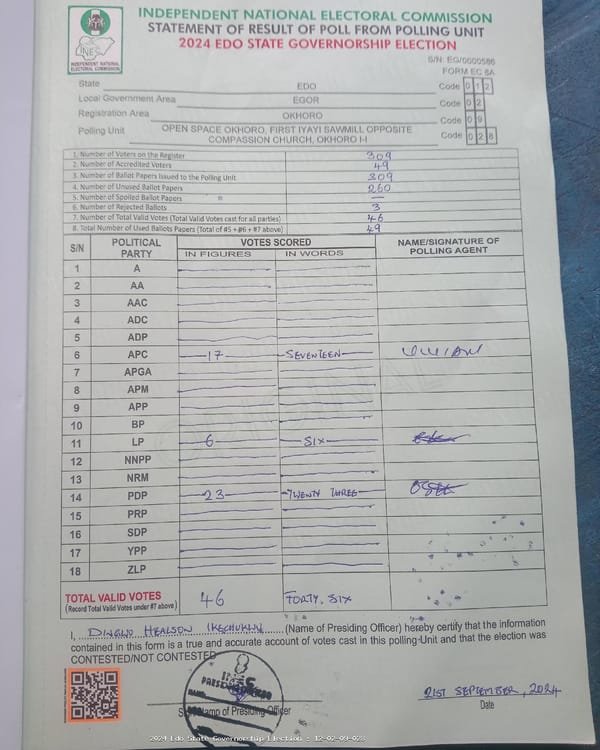 INDEPENDENT NATIONAL ELECTORAL COMMISSION
STATEMENT OF RESULT OF POLL FROM POLLING UNIT
2024 EDO STATE GOVERNORSHIP ELECTION
INEC
INDEPENDENT NATIONAL ELECTORAL COMMISSION
S/N: EG/0000586
FORM EC 8A
State EDO Code 0 1 2
Local Government Area EGOR Code 0 2
Registration Area OKHORO Code 0 9
Polling Unit OPEN SPACE OKHORO, FIRST IYAYI SAWMILL OPPOSITE COMPASSION CHURCH, OKHORO I-I Code 0 2 8
1. Number of Voters on the Register 309
2. Number of Accredited Voters 49
3. Number of Ballot Papers Issued to the Polling Unit 309
4. Number of Unused Ballot Papers 260
5. Number of Spoiled Ballot Papers —
6. Number of Rejected Ballots 3
7. Number of Total Valid Votes (Total Valid Votes cast for all parties) 46
8. Total Number of Used Ballots Papers (Total of #5 + #6 + #7 above) 49
S/N POLITICAL PARTY VOTES SCORED NAME/SIGNATURE OF POLLING AGENT
IN FIGURES IN WORDS
1 A
2 AA
3 AAC
4 ADC
5 ADP
6 APC 17 SEVENTEEN
7 APGA
8 APM
9 APP
10 BP
11 LP 6 SIX
12 NNPP
13 NRM
14 PDP 23 TWENTY THREE
15 PRP
16 SDP
17 YPP
18 ZLP
TOTAL VALID VOTES 46 FORTY, SIX
(Record Total Valid Votes under #7 above)
I, (Name of Presiding Officer) hereby certify that the information
contained in this form is a true and accurate account of votes cast in this polling-Unit and that the election was
CONTESTED/NOT CONTESTED
21ST SEPTEMBER, 2024
of Presiding Officer Date
2024 Edo State Governorship Election : 12-02-09-028